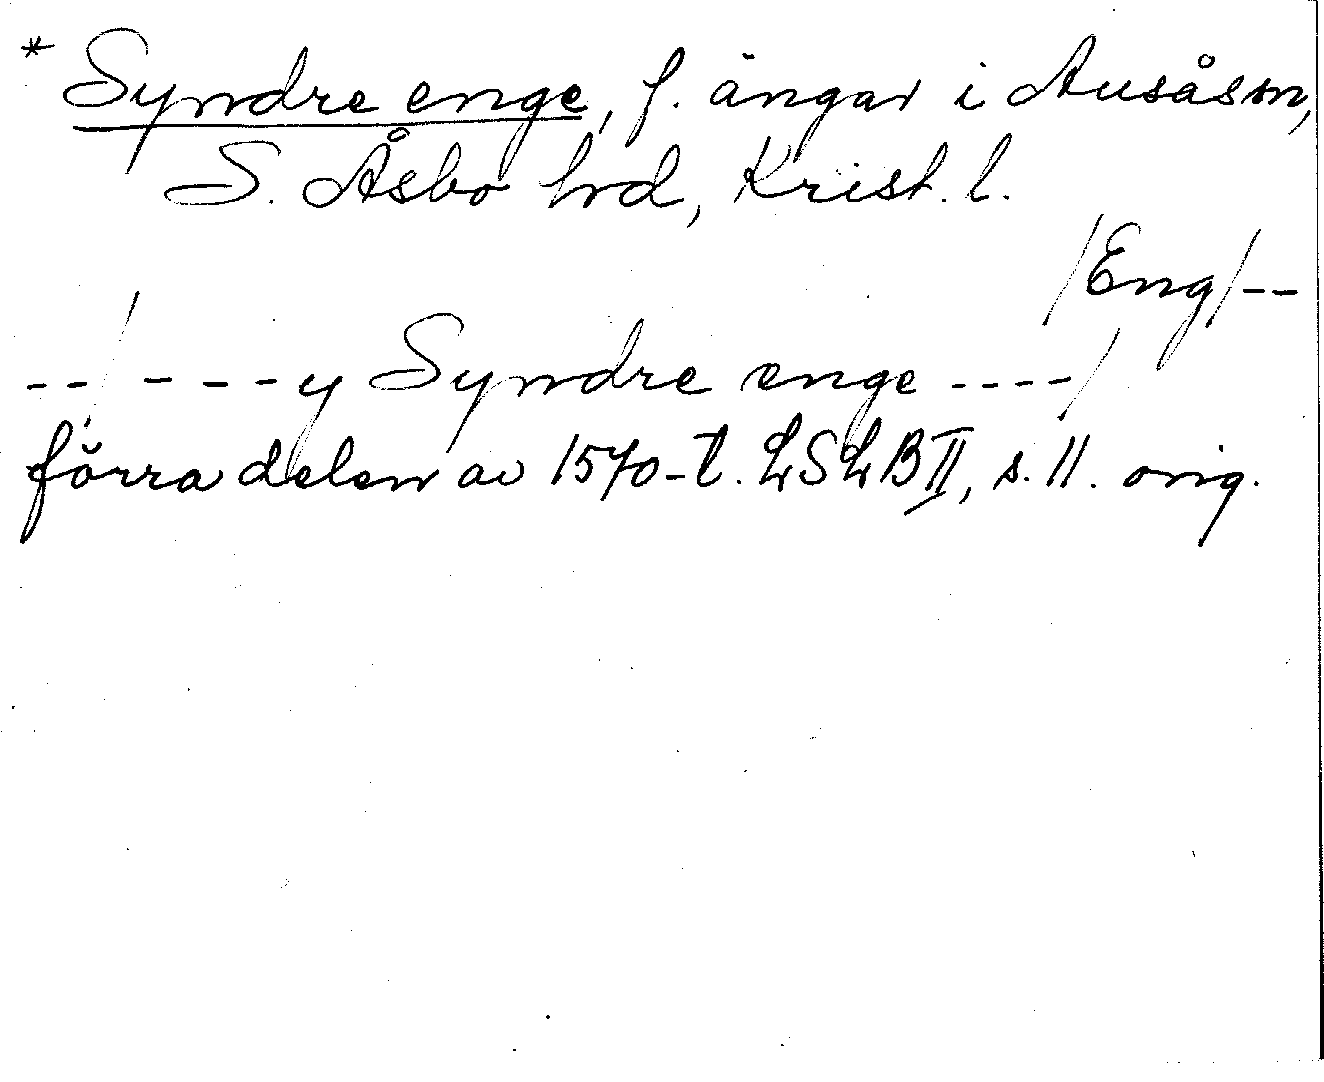 * Syndre enge, f. ängar i Ausås sn,
S. Åsbo hd, Krist. l.
/Eng/--
--/----y Syndre enge ----/
förra delen av 1570-t. LSLB II, s. 11. orig.